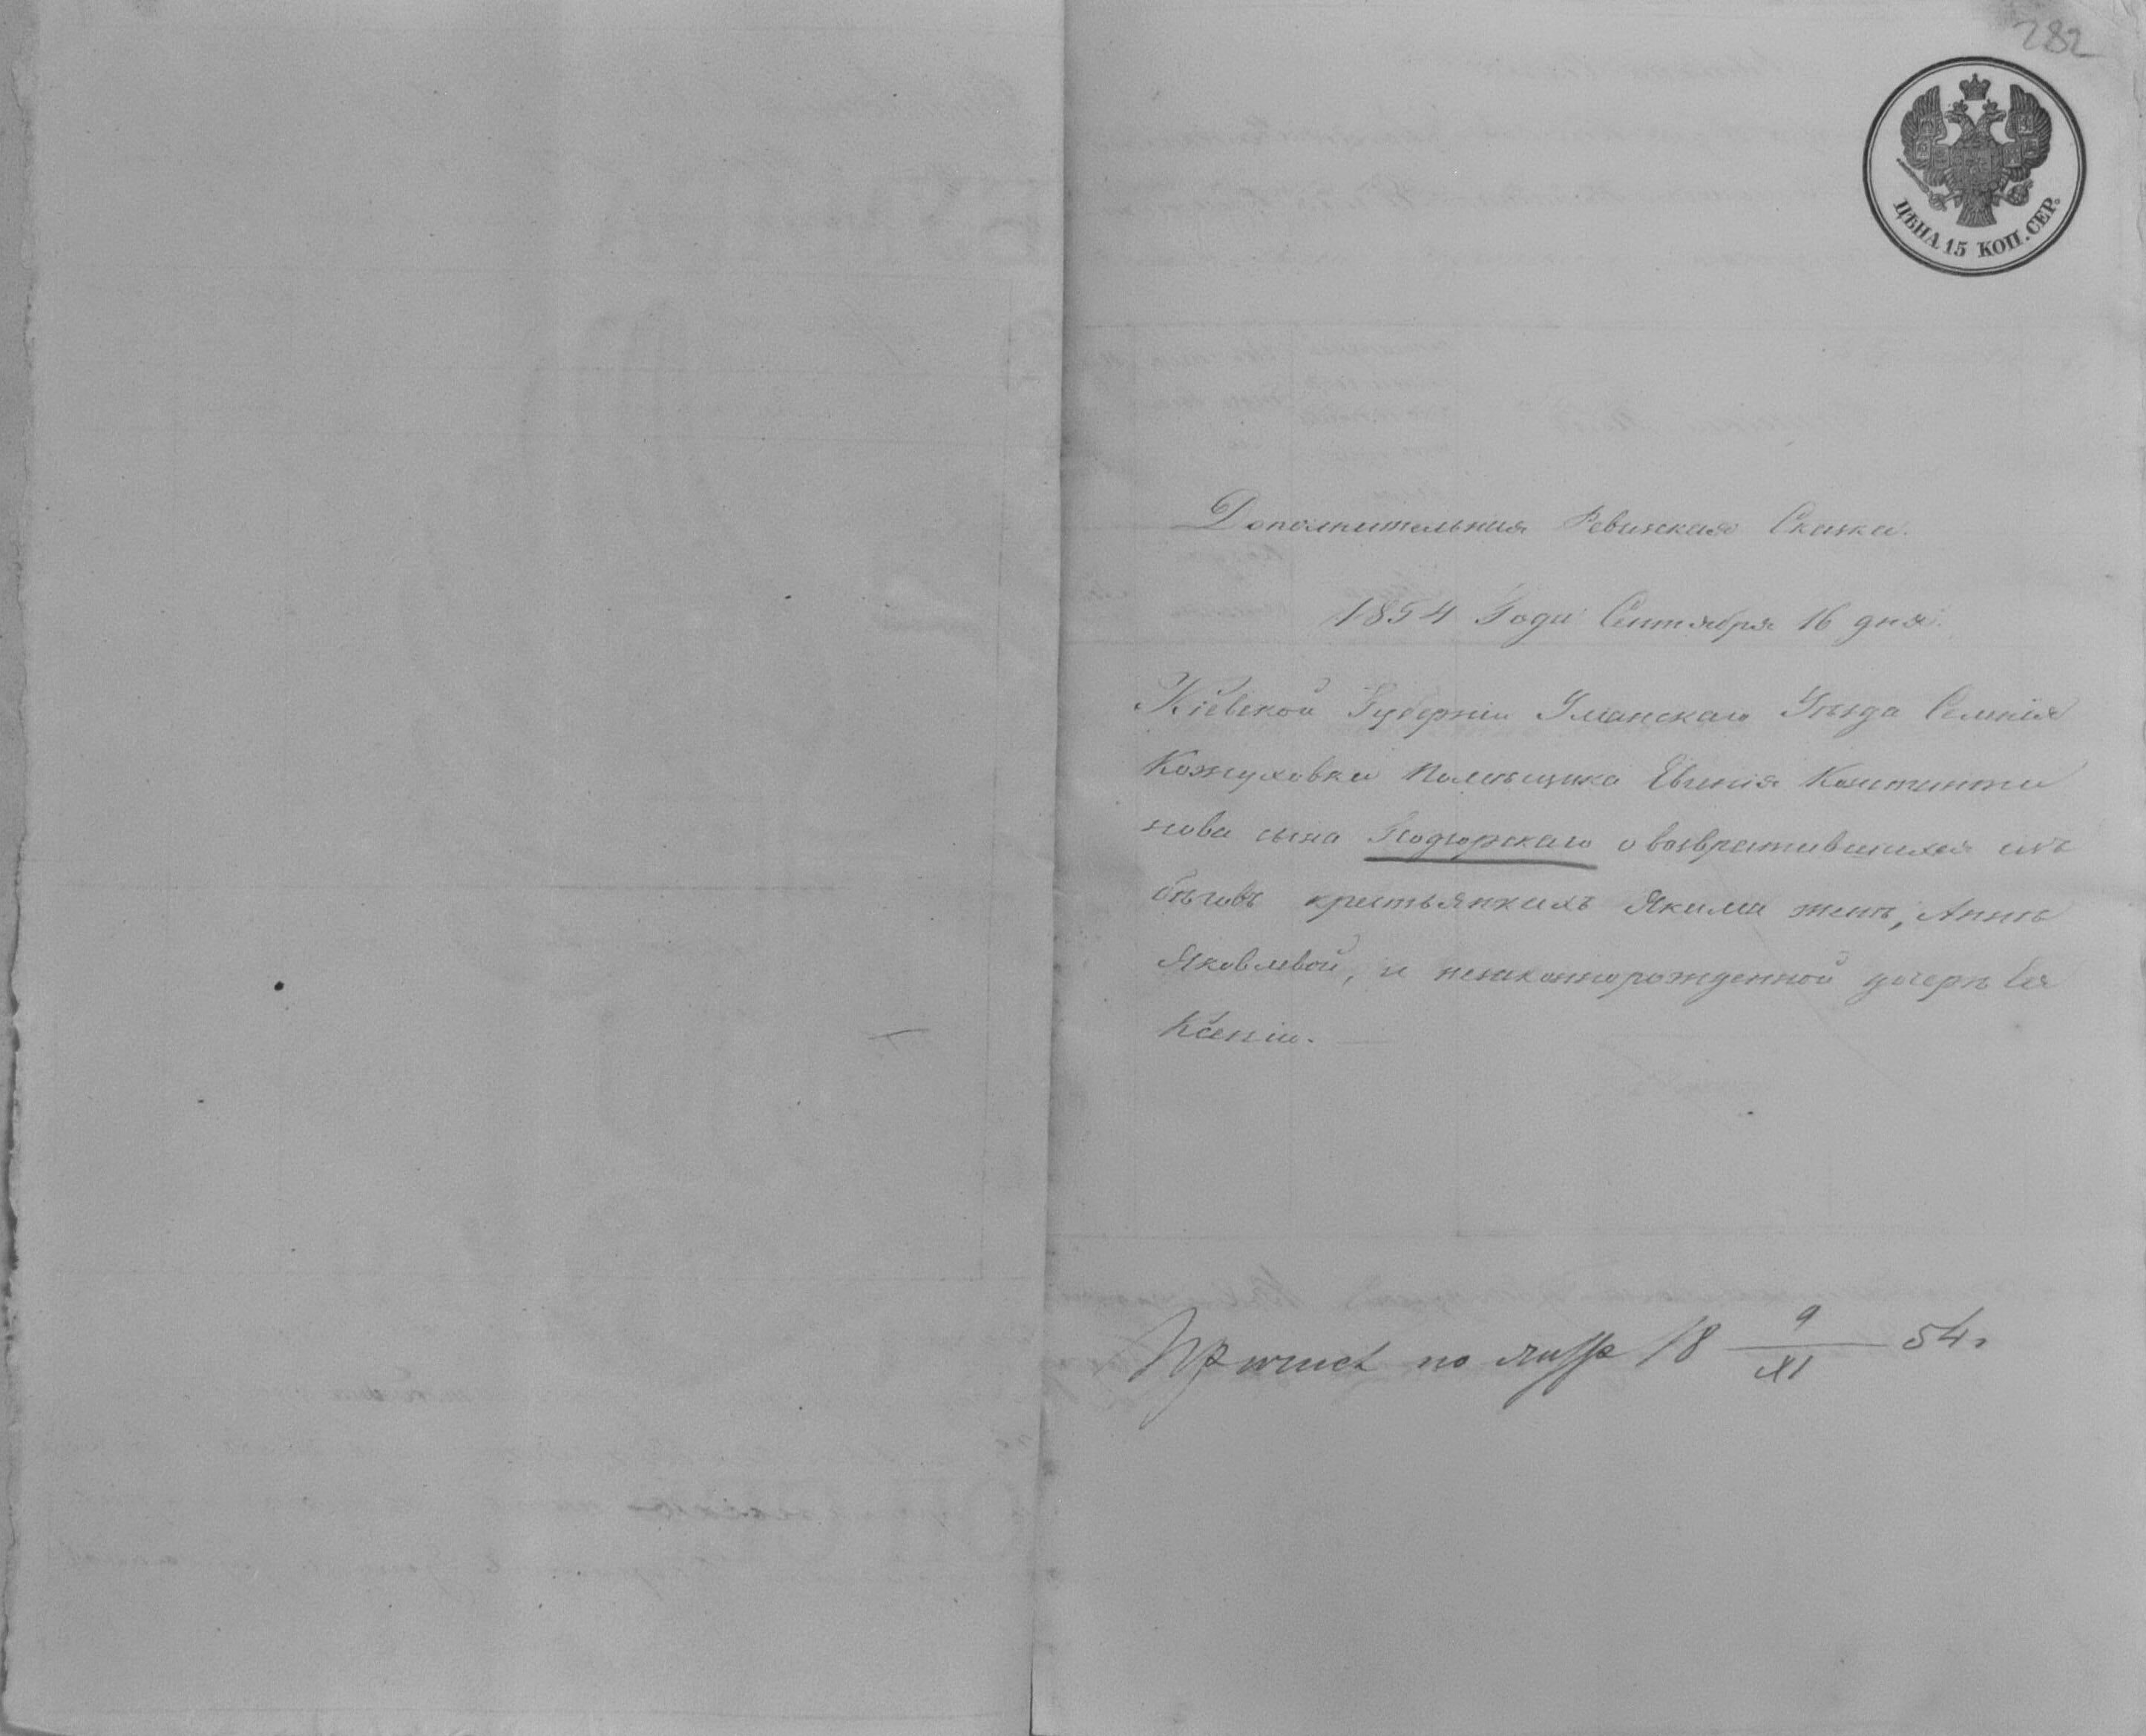 282
ЦѢНА 15 КОП. СЕР.
Дополнительная Ревизская Сказка.
1854 Года Сентября 16 дня.
Кіевской Губерніи Уманскаго Уѣзда Селенія
Кожуховки Помѣщика Евгенія Константи
нова сына Подгорскаго о возвратившихся изъ
бѣговъ крестьянкахъ Якима женѣ, Аннѣ
Яковлевой, и незаконнорожденной дочерѣ Ея
Ксеніи.
по 18 9/XI 54 г